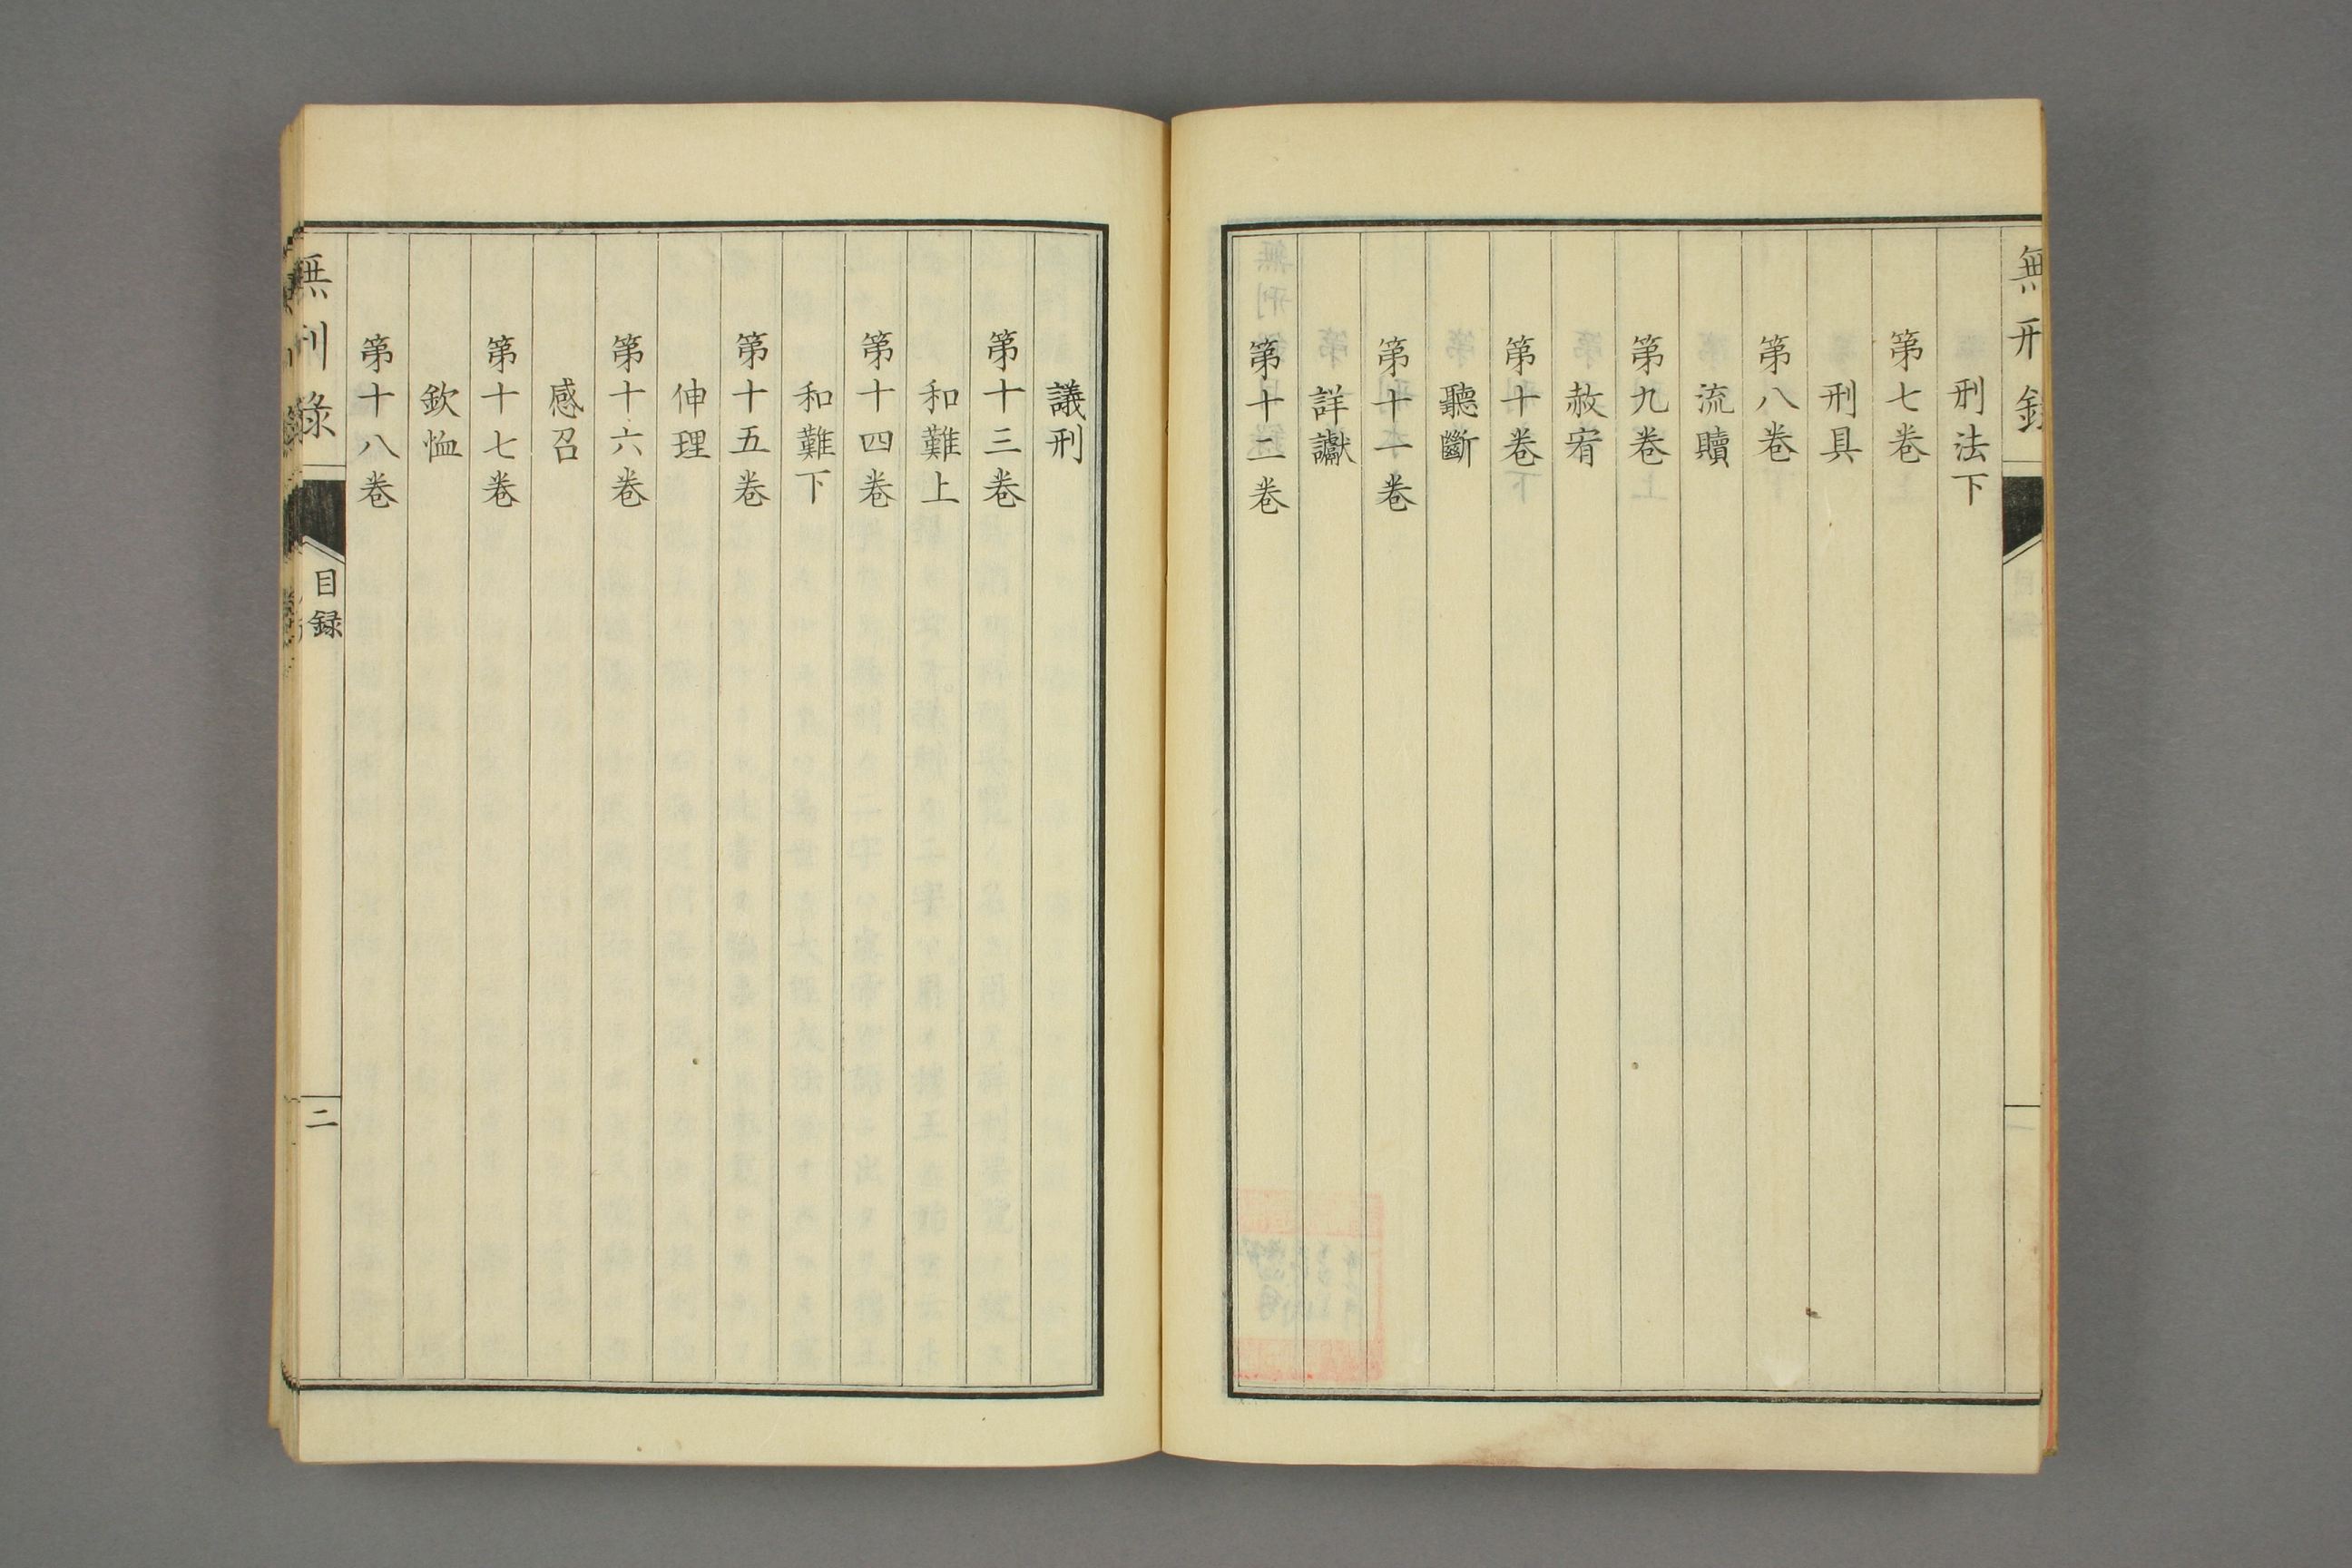 無刑錄
刑法下
第七卷
刑具
第八卷
流贖
第九卷
赦宥
第十卷
聽斷
第十一卷
詳讞
第十二卷
議刑
第十三卷
和難上
第十四卷
和難下
第十五卷
伸理
第十六卷
感召
第十七卷
欽恤
第十八卷
無刑錄
目録
二